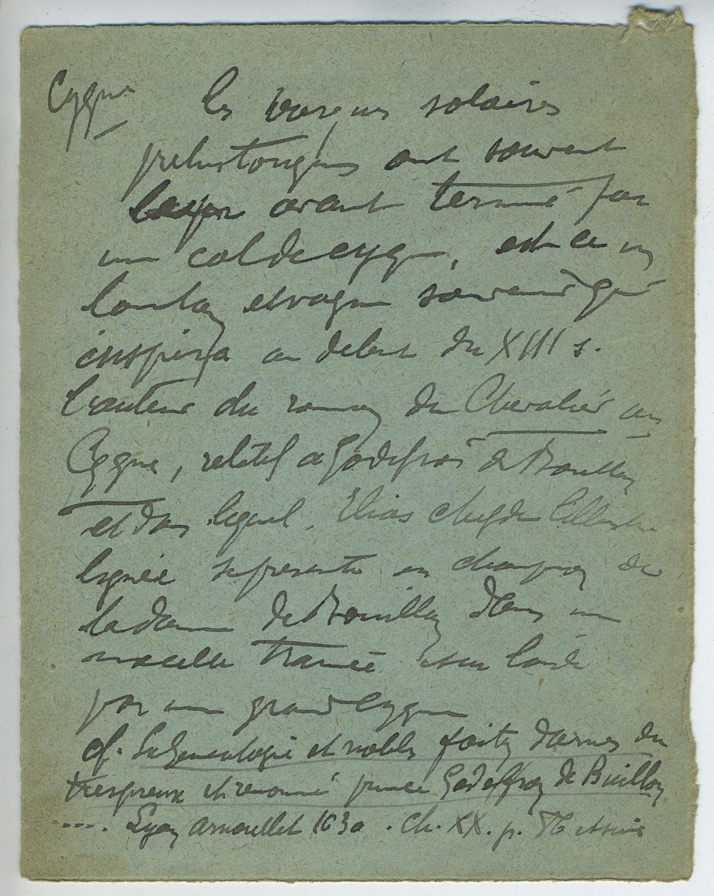 Cygne
les barques solaires
préhistoriques ont souvent
leur avant terminé par
un col de cygne, est ce un
lointain et vague souvenir qui
inspira au début du XIII s.
l'auteur du roman du Chevalier au
Cygne, relatif a Godefroi de Bouillon
et dans lequel, Elias chef de l'illustre
lignée se présente en champion de
la dame de Bouillon dans une
nacelle trainée sur l'onde
par un grand cygne
cf. La Genealogie et nobles faitz darmes du
trespreux et renommé prince Godeffroy de Buillon
.... Lyon Arnoullet 1630 . Ch. XX. p. et suiv